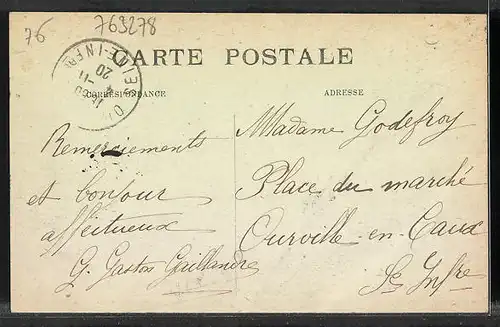 76
763278
CARTE POSTALE
CORRESPONDANCE
ADRESSE
SEINE-INFRE
20
11
Remerciements
et bonjour
affectueux
G. Gaston Gaillandre
Madame Godefroy
Place du marché
Ourville-en-Caux
Se Infre